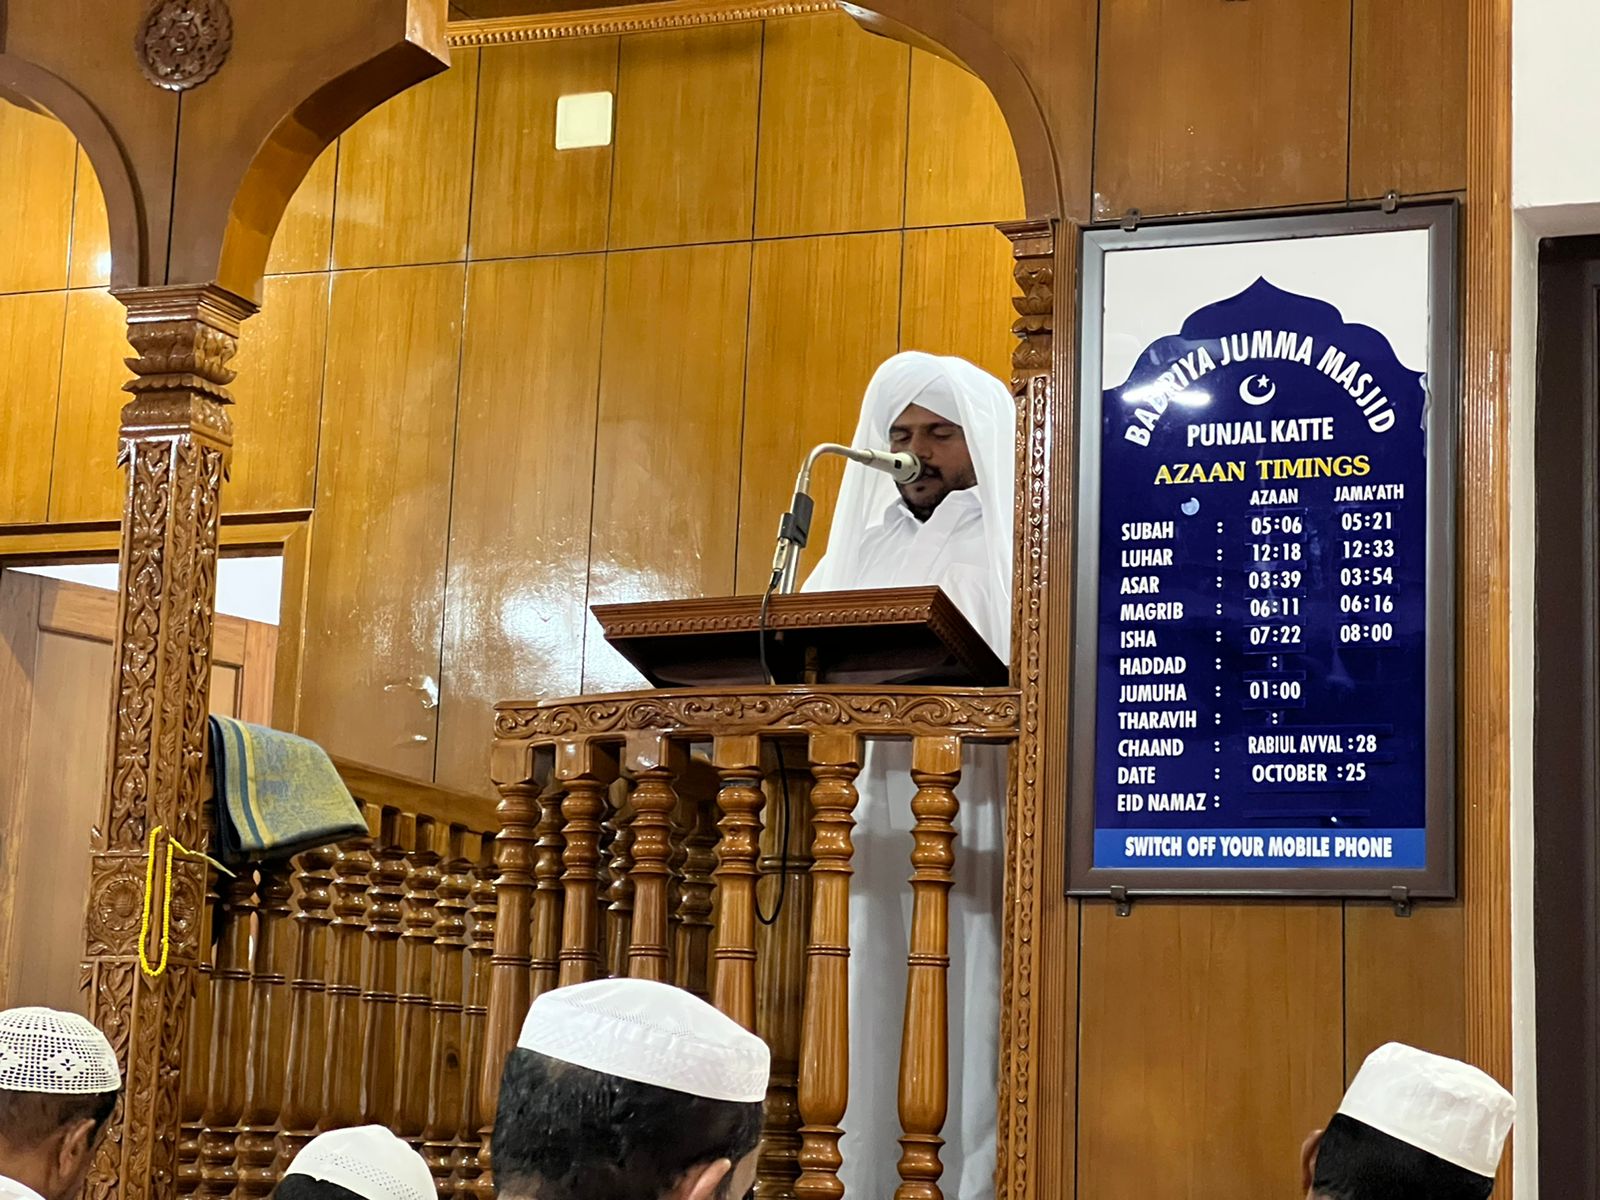 BADRIYA JUMMA MASJID
PUNJAL KATTE
AZAAN TIMINGS
AZAAN JAMA'ATH
SUBAH : 05:06 05:21
LUHAR : 12:18 12:33
ASAR : 03:39 03:54
MAGRIB : 06:11 06:16
ISHA : 07:22 08:00
HADDAD : :
JUMUHA : 01:00
THARAVIH : :
CHAAND : RABIUL AVVAL :28
DATE : OCTOBER :25
EID NAMAZ :
SWITCH OFF YOUR MOBILE PHONE